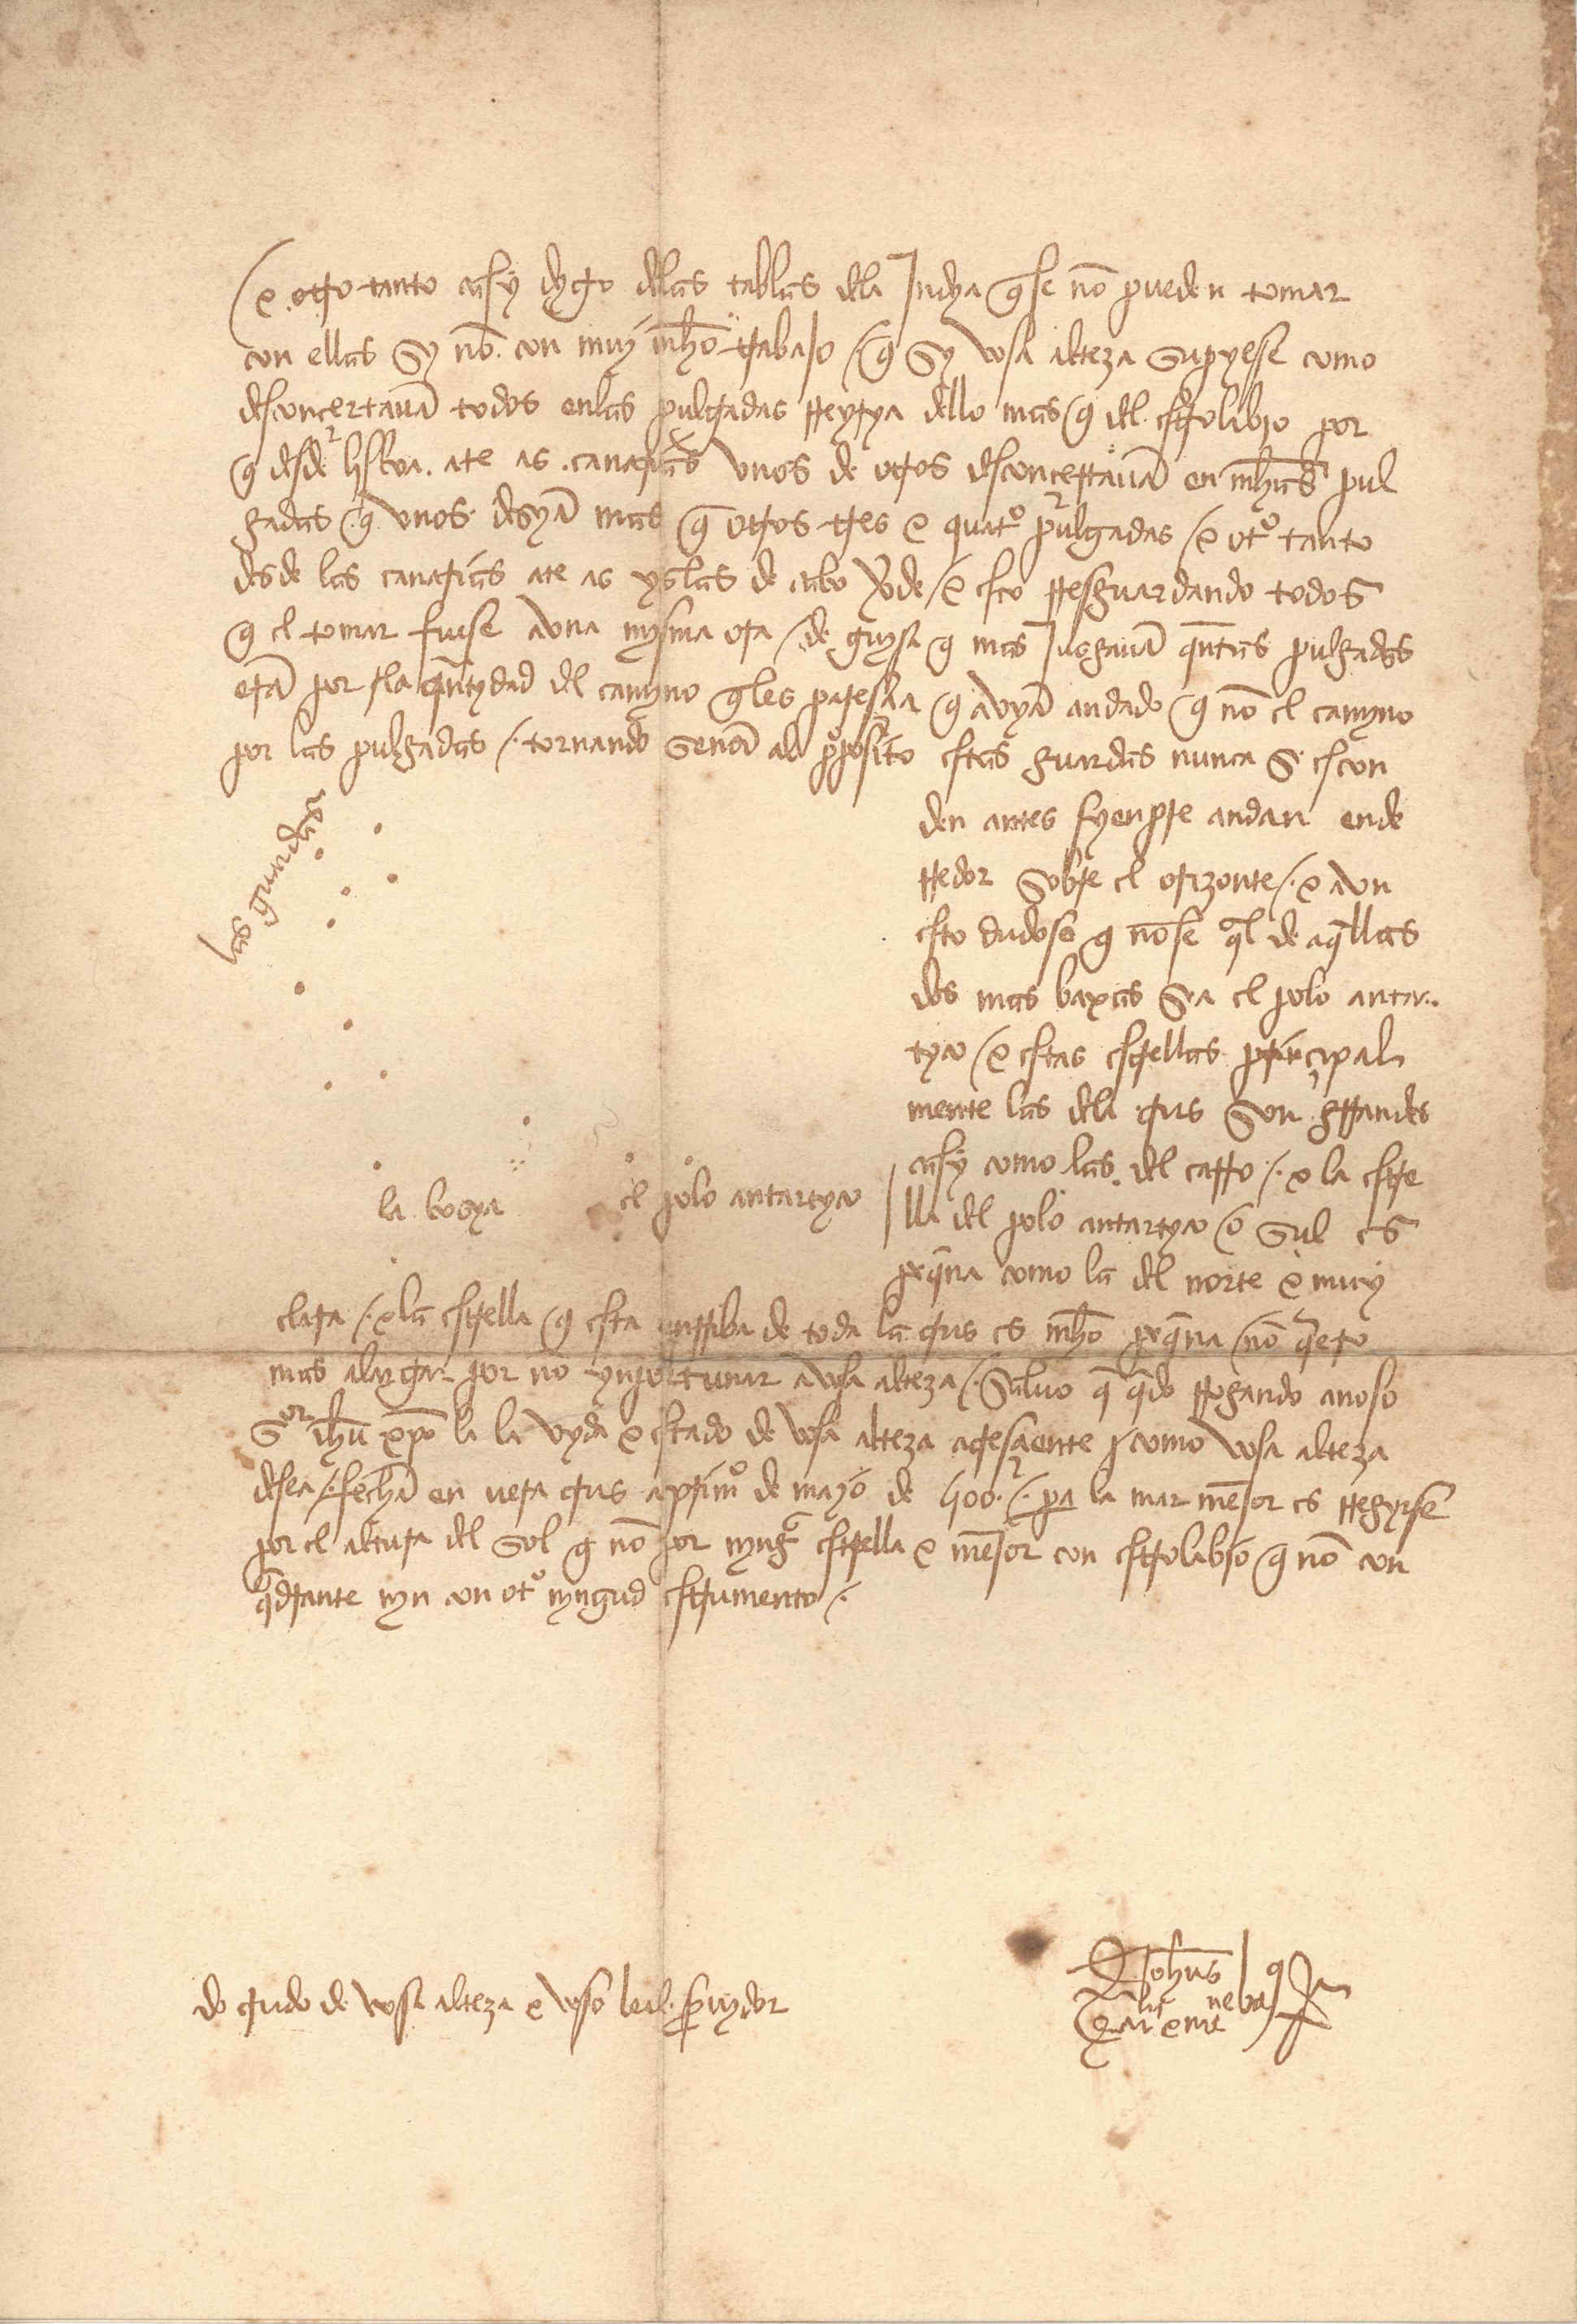 e otro tanto casy dygo delas tablas dela Jndya q̃ se nõ pueden tomar
con ellas sy nõ con muy mh̃o trabajo / q̃ sy vosa alteza supyese como
desconcertauã todos enlas pulgadas rreyrya dello mas q̃ del estrolabio por
q̃ desde lisboa ate as canarias vnos de otros desconcertauã en mh̃as pul
gadas q̃ vnos desyã mas q̃ otros tres e quatº pulgadas / e otº tanto
desde las canarias ate as yslas de cabo ṽde / e esto rresguardando todos
q̃ el tomar fuese a vna mysma ora / de guysa q̃ mas Jusgauã q̃ntas pulgadas
erã por la q̃ntydad del camyno q̃ les paresia q̃ avyã andado q̃ nõ el camyno
por las pulgadas /. tornando señor al pposito estas guardas nunca se escon
den antes syenpre andan en de
rredor sobre el orizonte /. e avn
esto dudoso q̃ nõ se q̃l de aq̃llas
dos mas baxas sea el polo antar
tyco / e estas estrellas principal
mente las dela crus son grrandes
casy como las del carro /. e la estre
lla del polo antartyco o sul es
peq̃na como la del norte e muy
las guardas
la bosya
el polo antartyco
clara /. e la estrella q̃ esta en rriba de toda la crus es mh̃o peq̃na / nõ q̃ero
mas alargar por nõ ynportunar a vosa alteza /. saluo q̃ q̃do rrogando a noso
sor ih̃u xpo la la vyda e estado de vosa alteza acresciente como vosa alteza
desea /. fecha en uera crus a primº de mayo de 500. /. pa la mar mejor es rregyrse
por el altura del sol q̃ nõ por nyngª estrella e mejor con estrolabio q̃ nõ con
q̃drante nyn con otº nyngud estrumento /.
do criado de vosa alteza e voso leal servydor
Johanes
artium et medicine bachalarius